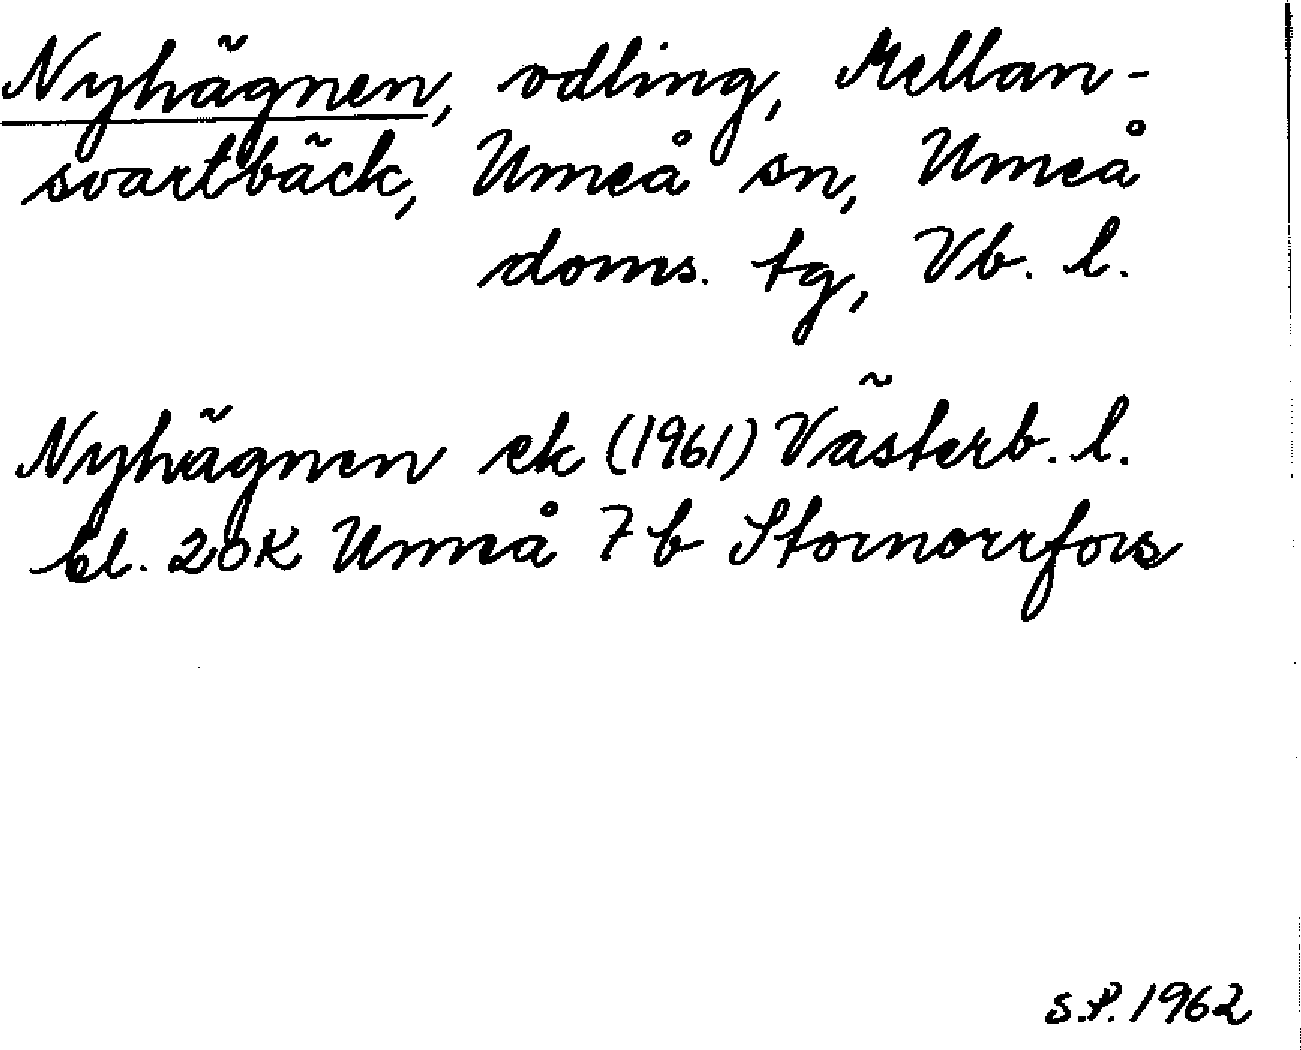 Nyhägnen, odling, Mellan-
svartbäck, Umeå sn, Umeå
doms. tg, Vb. l.
Nyhägnen ek (1961) Västerb. l.
bl. 20K Umeå 7b Stornorrfors
S.P. 1962